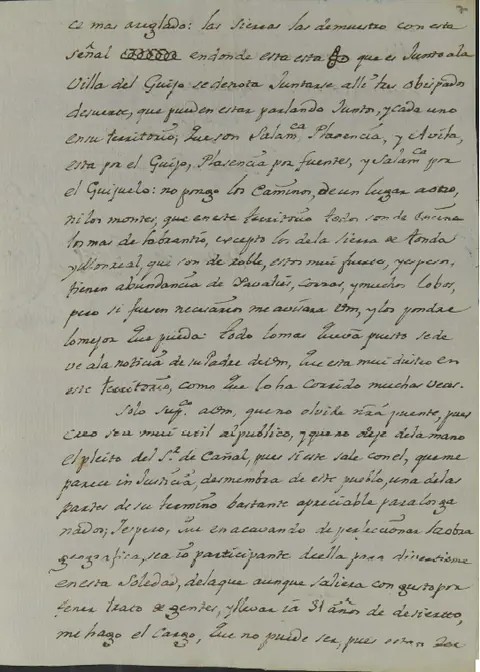 es mas areglado: las sierras las demuestro con esta
señal endonde esta esta que es Junto ala
Villa del Guijo se denota Juntarse alli tres obispados
desuerte, que pueden estar parlando Juntos, y cada uno
en su territorio; que son Salam.ca Plasencia, y Avila,
esta por el Guijo, Plasencia por fuentes, y Salam.ca por
el Guijuelo: no pongo los Caminos, de un lugar aotro,
ni los montes, que en este territorio todos son de Encina
los mas de labrantio, excepto los dela Sierra de
y Monreal, que son de roble, estos mui fuerte, y espeso,
tienen abundancia de Javalies, corzos, y muchos lobos,
pero si fuesen necesarios me avisara Vm, y los pondre
lo mejor que pueda: todo lo mas que va puesto se de
ve ala noticia de su Padre de Vm, que esta mui diestro en
este territorio, como que lo ha Corrido muchas veces.
Solo sup.co a Vm, que no olvide nrã puente, pues
creo sera mui util al publico, y que no deje dela mano
el pleito del S.r de Cañal, pues si este sale con el, que me
parece injusticia, desmembra de este pueblo, una delas
partes de su termino bastante apreciable para los ga
nados; Espero, que en acavando de perfecionar la obra
geografica, sea Yo participante de ella para divertirme
en esta Soledad, dela que aunque saliera con gusto por
tener trato de gentes, y llevar ia 31 añ.s de desierto,
me hago el Cargo, que no puede ser, pues estan